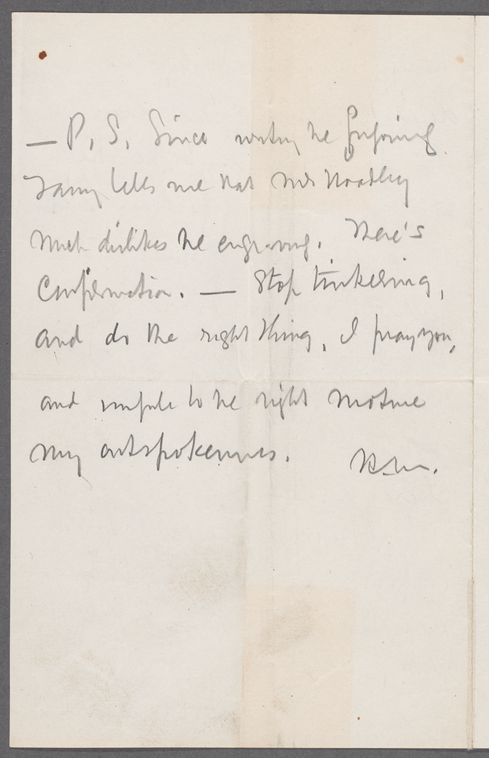 — P. S. Since writing the foregoing
Fanny tells me that Mrs Hoadley
much dislikes the engraving. There's
Confirmation. — Stop tinkering,
and do the right thing, I pray you,
and impute to the right motive
my outspokenness.